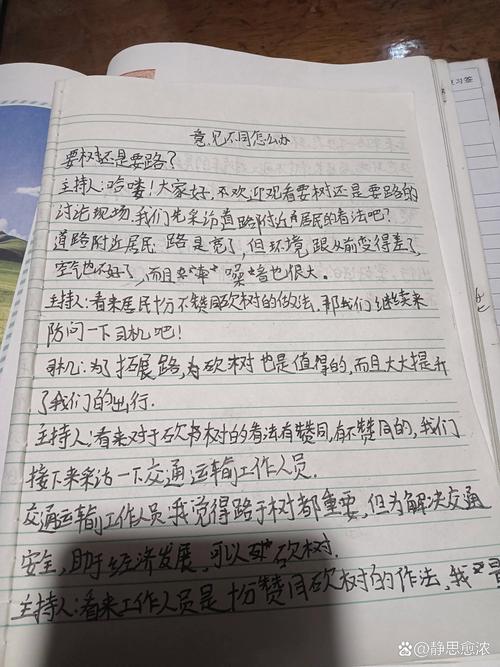 意见不同怎么办
要树还是要路?
主持人:哈喽!大家好,欢迎观看要树还是要路的
讨论现场,我们先采访道路附近居民的看法吧?
道路附近居民:路是宽了,但环境跟从前变得差了,
空气也不好了,而且噪音也很大。
主持人:看来居民十分不赞同砍树的做法.那我们继续来
防问一下司机吧!
司机:为了拓展路,为砍树也是值得的,而且大大提升
了我们的出行.
主持人:看来对于砍树的看法有赞同,有不赞同的,我们
接下来采访一下交通运输工作人员.
交通运输工作人员:我觉得路于树都重要,但为解决交通
安全,助于经济发展,可以砍树.
主持人:看来工作人员是十份赞同砍树的作法,我
复习签
Bai百度
@静思愈浓